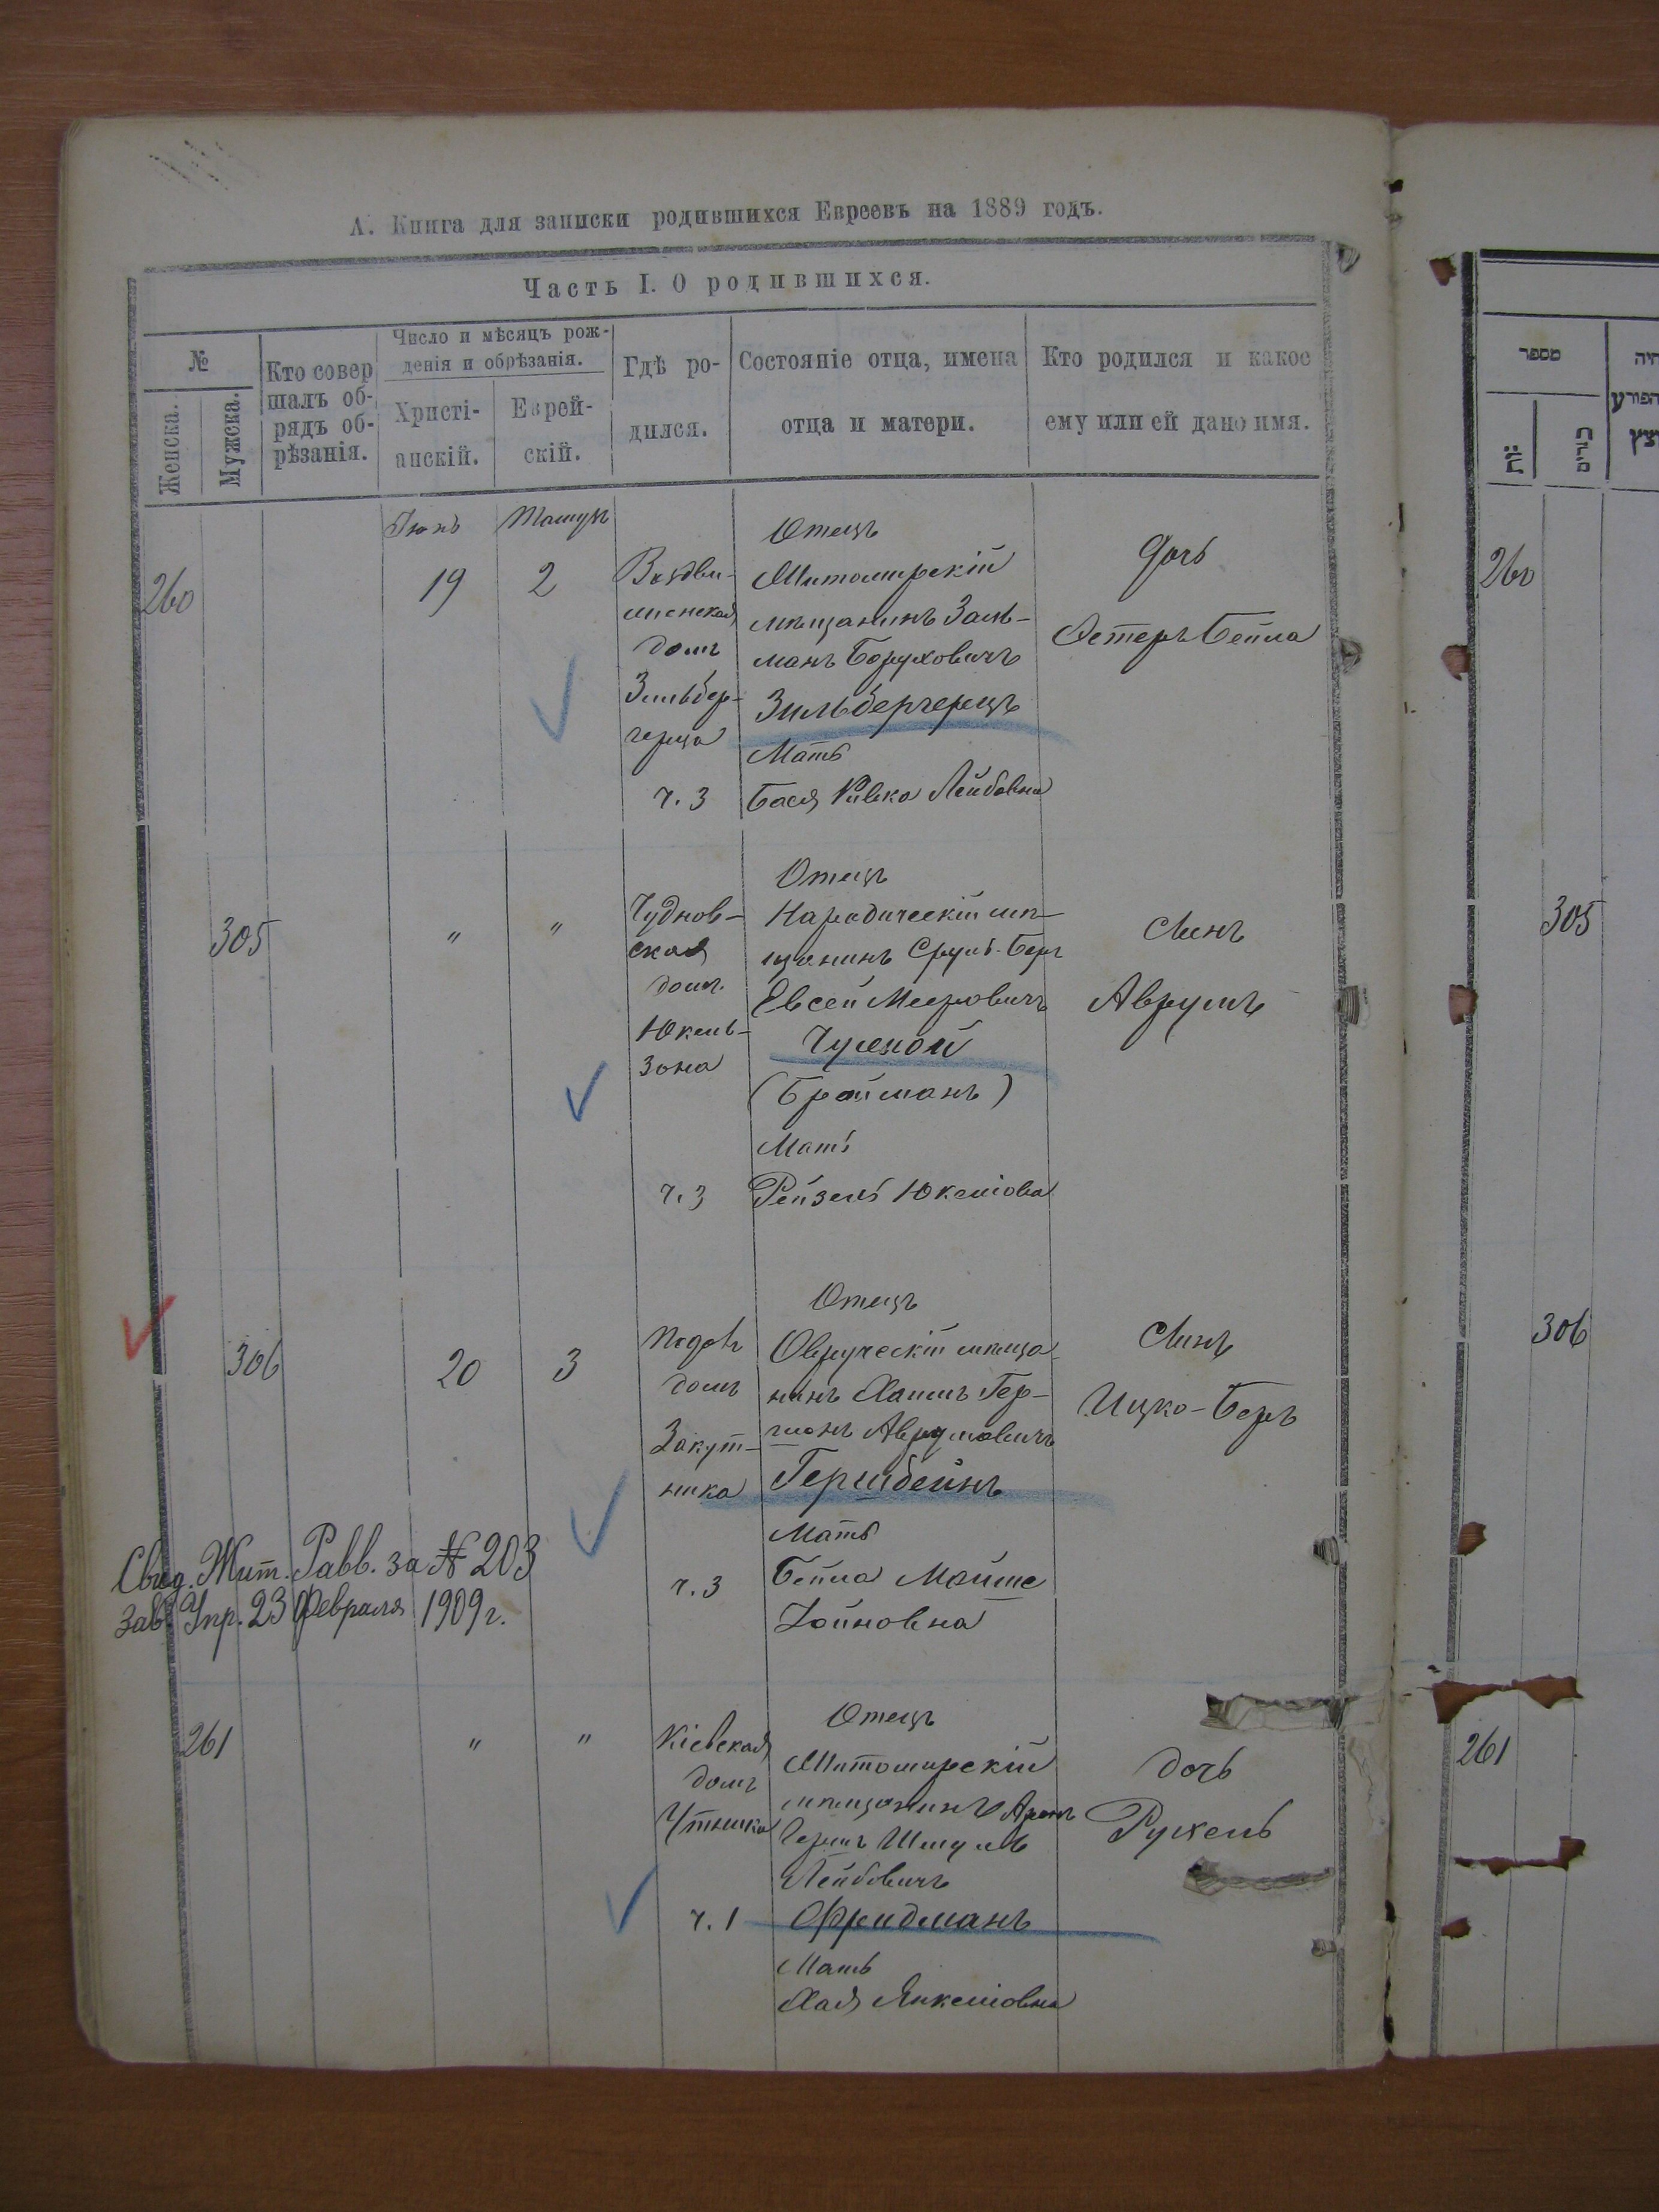 А. Книга для записки родившихся Евреевъ на 1889 годъ.
Часть I. О родившихся.
№
Женска.
Мужска.
Кто совер
шалъ об-
рядъ об-
рѣзанія.
Число и мѣсяцъ рож-
денія и обрѣзанія.
Христі-
анскій.
Еврей-
скій.
Гдѣ ро-
дился.
Состояніе отца, имена
отца и матери.
Кто родился и какое
ему или ей дано имя.
260
Іюнь
19
Тамузъ
2
домъ
Зильбер-
герца
ч. 3
Отецъ
Житомирскій
мѣщанинъ Заль-
манъ Боруховичъ
Зильбергерцъ
Мать
Бася Ривка Лейбовна
Дочь
Эстеръ Бейла
305
"
"
Чуднов-
ская
домъ
Юкель-
зона
ч. 3
Отецъ
Народическій мѣ-
щанинъ Сруль-Беръ
Евсей Мееровичъ
(Брайманъ)
Мать
Рейзель Юкелiовна
Сынъ
Аврумъ
306
20
3
домъ
Закут-
ника
ч. 3
Отецъ
Овручскій мѣща-
нинъ Хаимъ Гер-
шонъ Аврумовичъ
Гершбейнъ
Мать
Бейла Маише
Зойновна
Сынъ
Ицко-Беръ
Свид. Жит. Равв. за № 203
Зав. Упр. 23 февраля 1909 г.
261
"
"
Кіевская
домъ
ч. 1
Отецъ
Житомирскій
мѣщанинъ Аронъ
Гершъ Шмуль
Лейбовичъ
Фридманъ
Мать
Хая Янкелiовна
дочь
Рухель
מספר
260
305
306
261